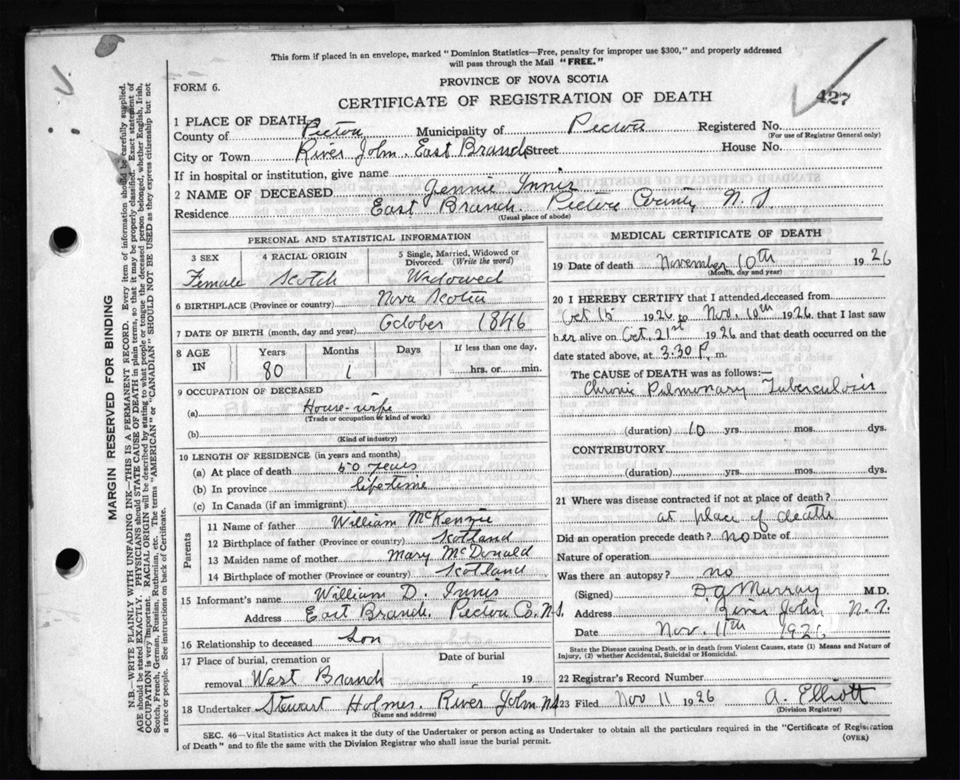 This form if placed in an envelope, marked "Dominion Statistics—Free, penalty for improper use $300," and properly addressed
will pass through the Mail "FREE."
FORM 6.
PROVINCE OF NOVA SCOTIA
CERTIFICATE OF REGISTRATION OF DEATH
427
1 PLACE OF DEATH
County of Pictou Municipality of Pictou Registered No.
(For use of Registrar General only)
City or Town River John, East Branch Street House No.
If in hospital or institution, give name
2 NAME OF DECEASED Jennie Innis
Residence East Branch. Pictou County, N. S.
(Usual place of abode)
PERSONAL AND STATISTICAL INFORMATION
3 SEX Female
4 RACIAL ORIGIN Scotch
5 Single, Married, Widowed or
Divorced. (Write the word)
Widowed
6 BIRTHPLACE (Province or country) Nova Scotia
7 DATE OF BIRTH (month, day and year) October 1846
8 AGE IN
Years 80
Months 1
Days
If less than one day,
hrs. or min.
9 OCCUPATION OF DECEASED
(a) House-wife
(Trade or occupation or kind of work)
(b)
(Kind of industry)
10 LENGTH OF RESIDENCE (in years and months)
(a) At place of death 50 years
(b) In province life-time
(c) In Canada (if an immigrant)
Parents
11 Name of father William McKenzie
12 Birthplace of father (Province or country) Scotland
13 Maiden name of mother Mary McDonald
14 Birthplace of mother (Province or country) Scotland
15 Informant's name William D. Innis
Address East Branch, Pictou Co. N.S.
16 Relationship to deceased Son
17 Place of burial, cremation or
removal West Branch
Date of burial
19
18 Undertaker Stewart Holmes River John NS
(Name and address)
MEDICAL CERTIFICATE OF DEATH
19 Date of death November 10th 1926
(Month, day and year)
20 I HEREBY CERTIFY that I attended deceased from
Oct 15 1926 to Nov. 10th 1926, that I last saw
her alive on Oct. 21st 1926 and that death occurred on the
date stated above, at 3.30 P. m.
The CAUSE of DEATH was as follows:—
Chronic Pulmonary Tuberculosis
(duration) 10 yrs. mos. dys.
CONTRIBUTORY.
(duration) yrs. mos. dys.
21 Where was disease contracted if not at place of death?
at place of death
Did an operation precede death? no Date of
Nature of operation
Was there an autopsy? no
(Signed) D A Murray M.D.
Address River John, N.S.
Date Nov. 11th 1926
State the Disease causing Death, or in death from Violent Causes, state (1) Means and Nature of
Injury, (2) whether Accidental, Suicidal or Homicidal.
22 Registrar's Record Number
23 Filed Nov 11 1926 A. Elliott
(Division Registrar)
SEC. 46—Vital Statistics Act makes it the duty of the Undertaker or person acting as Undertaker to obtain all the particulars required in the "Certificate of Registration
of Death" and to file the same with the Division Registrar who shall issue the burial permit.
(OVER)
MARGIN RESERVED FOR BINDING
N.B.—WRITE PLAINLY WITH UNFADING INK—THIS IS A PERMANENT RECORD. Every item of information should be carefully supplied.
AGE should be stated EXACTLY. PHYSICIANS should STATE CAUSE OF DEATH in plain terms, so that it may be properly classified. Exact statement of
OCCUPATION is very important. RACIAL ORIGIN will be described by stating to what people or tongue the deceased person belonged, whether English, Irish,
Scotch, French, German, Russian, Ruthenian, etc. The terms "AMERICAN" or "CANADIAN" SHOULD NOT BE USED as they express citizenship but not
a race or people. See instructions on back of Certificate.